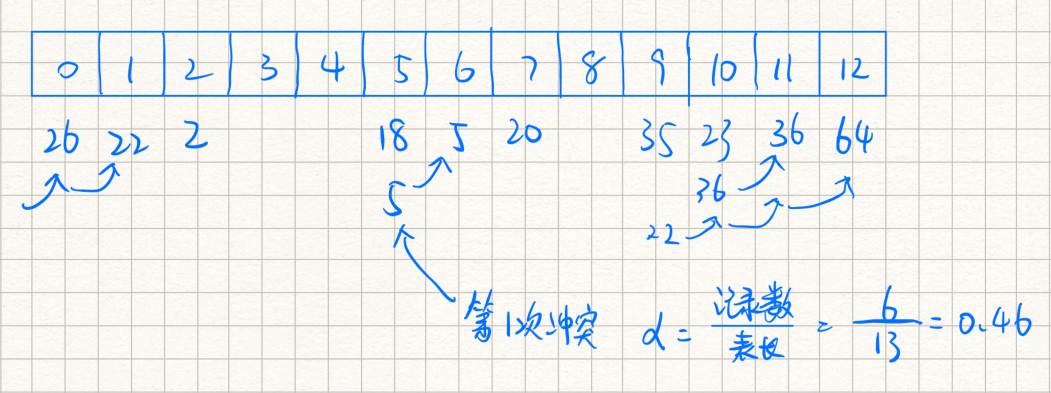 0 1 2 3 4 5 6 7 8 9 10 11 12
26 22 2 18 5 20 35 23 36 64
5 36
22
第1次冲突 α = 记录数/表长 = 6/13 = 0.46